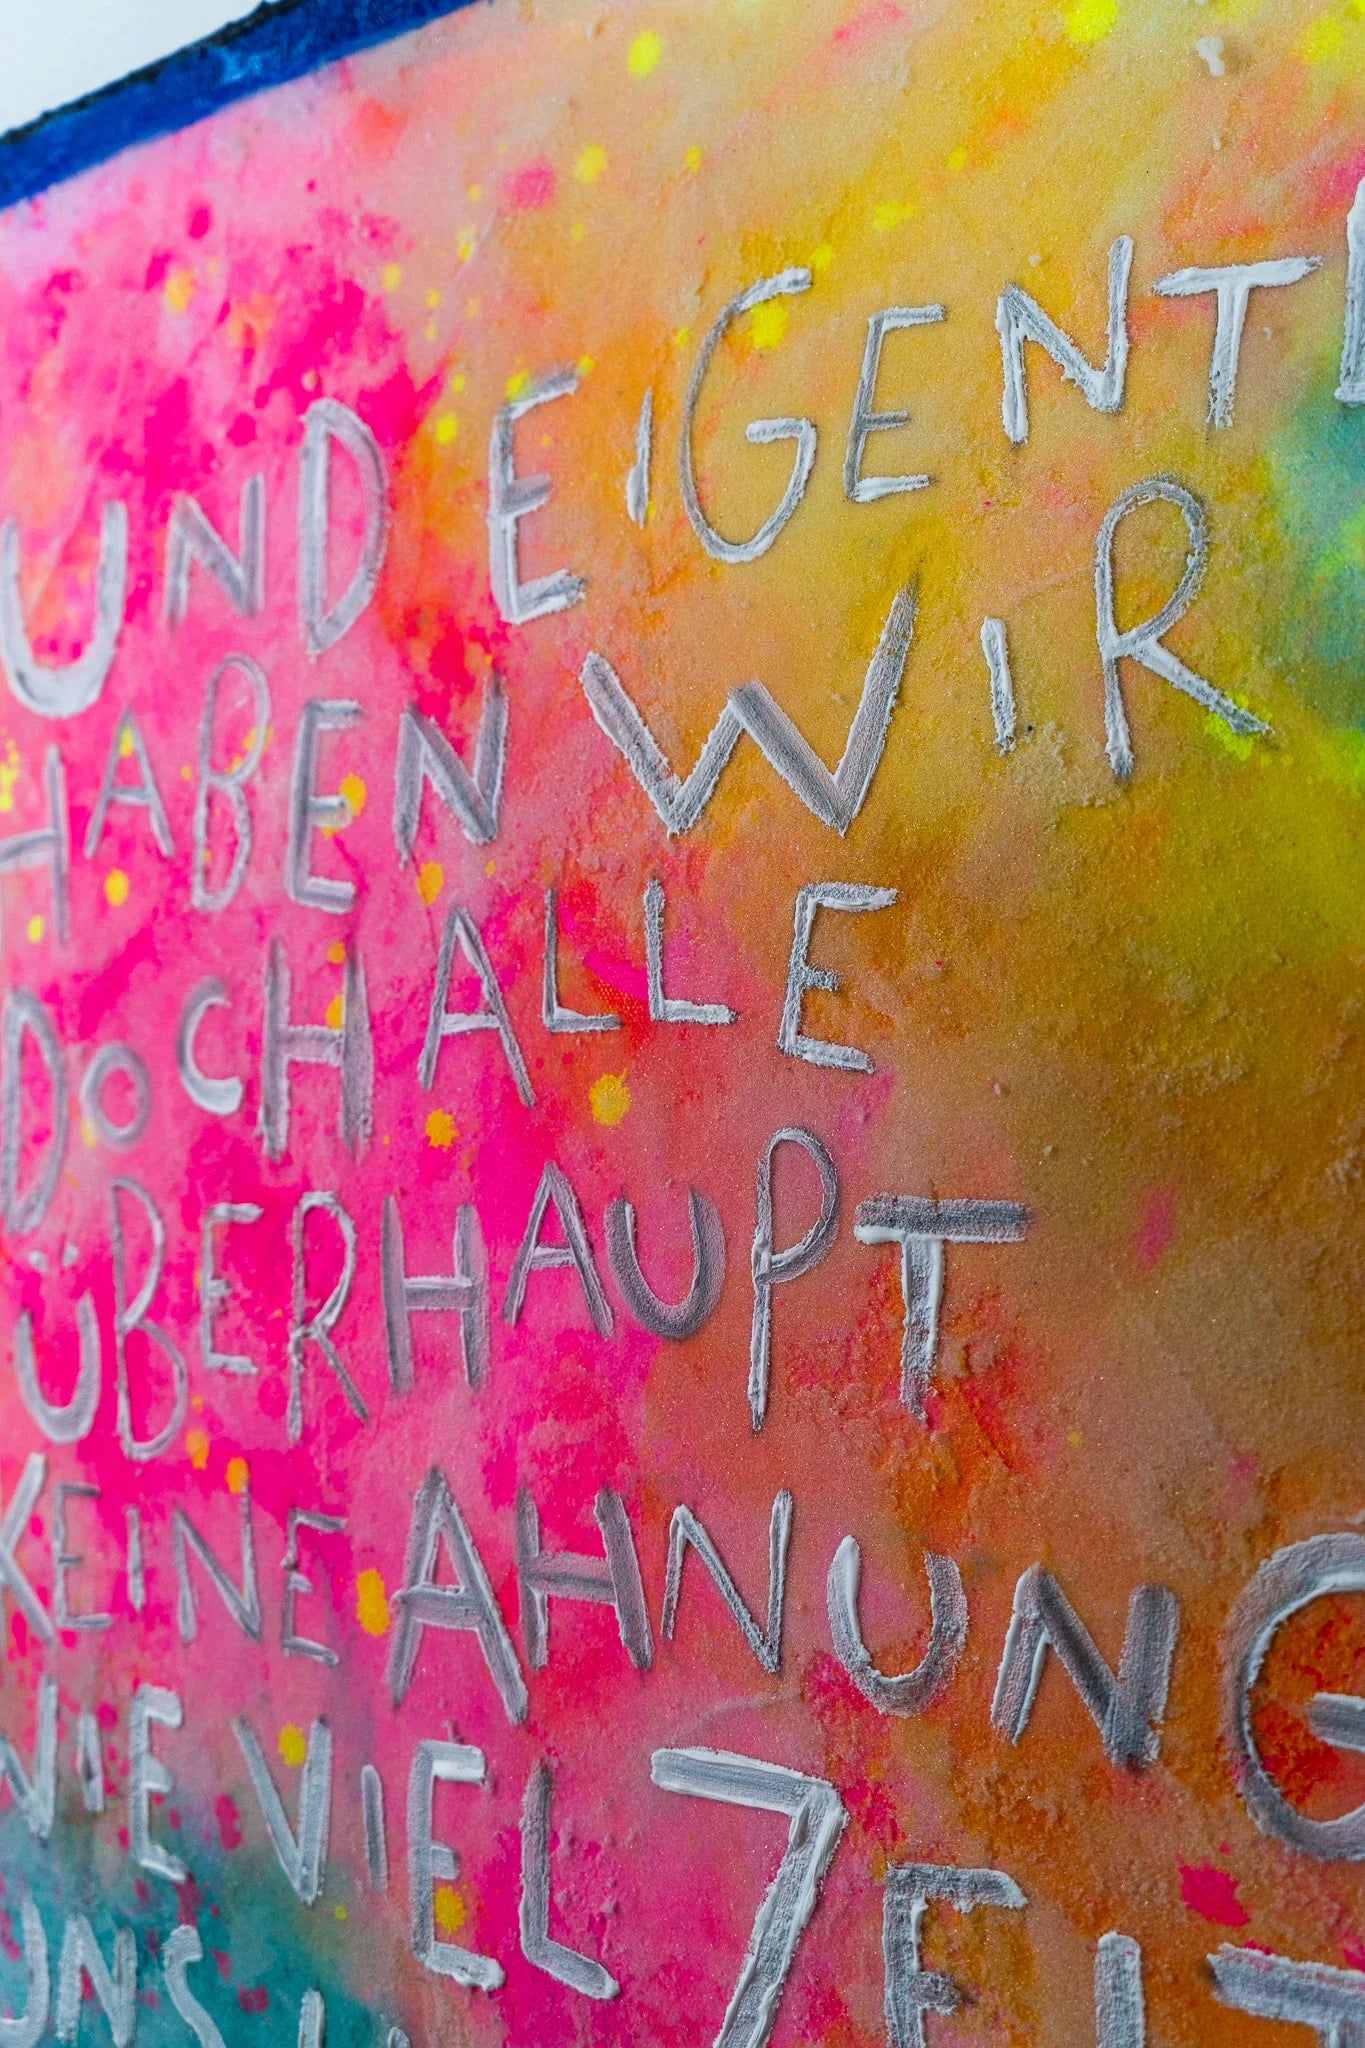 UND EIGENTL
HABEN WIR
DOCH ALLE
ÜBERHAUPT
KEINE AHNUNG
WIE VIEL ZEIT
UNS